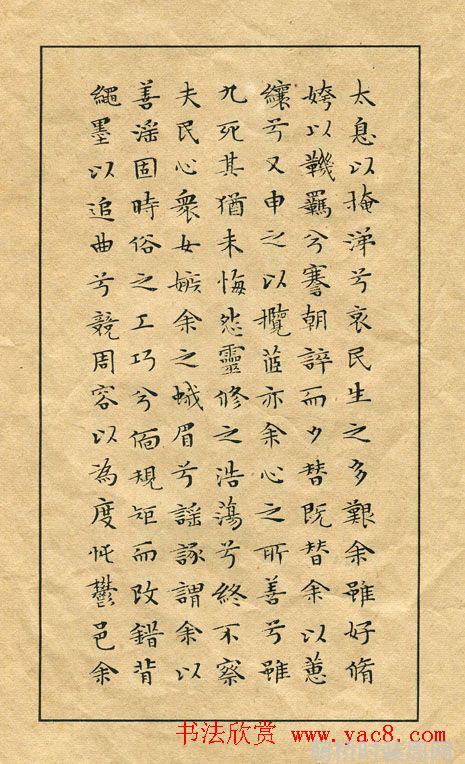 太息以掩涕兮哀民生之多艱余雖好脩
姱以鞿羈兮謇朝誶而夕替既替余以蕙
纕兮又申之以攬茝亦余心之所善兮雖
九死其猶未悔怨靈修之浩蕩兮終不察
夫民心衆女嫉余之蛾眉兮謠諑謂余以
善滛固時俗之工巧兮偭規矩而改錯背
繩墨以追曲兮競周容以為度忳鬱邑余
书法欣赏 www.yac8.com